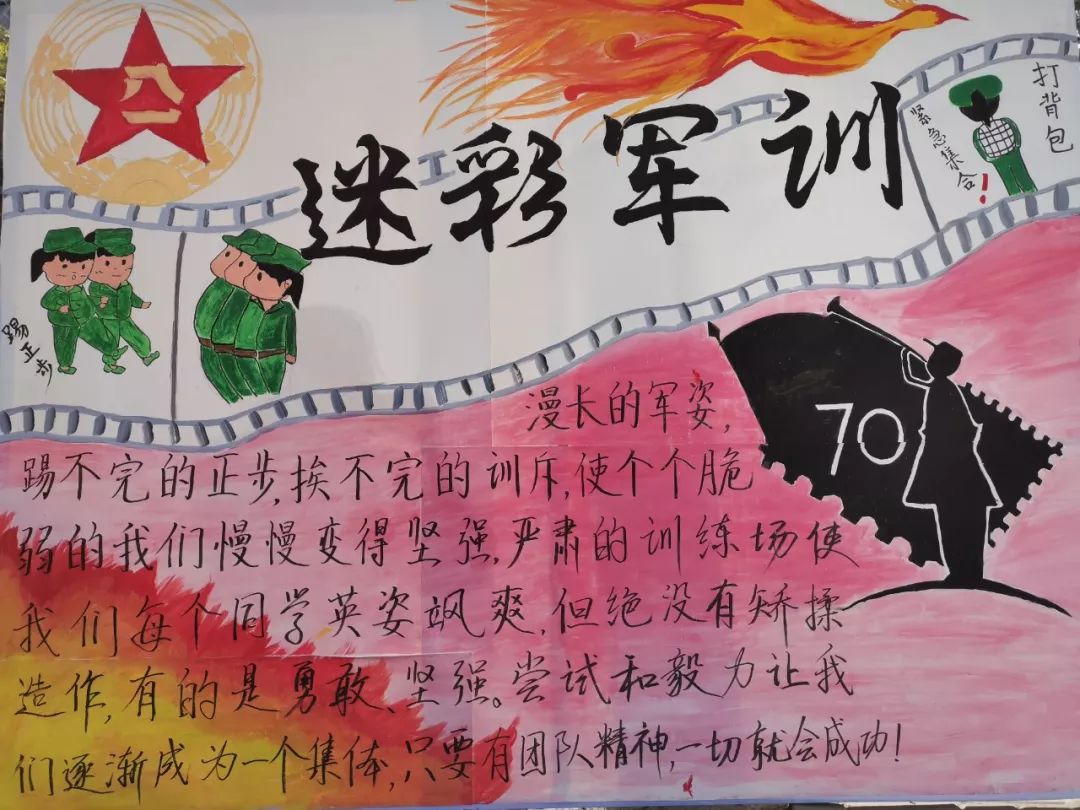 八一
迷彩军训
打背包
紧急集合!
踢正步
70
漫长的军姿,
踢不完的正步,挨不完的训斥,使个个脆
弱的我们慢慢变得坚强,严肃的训练场使
我们每个同学英姿飒爽,但绝没有矫揉
造作,有的是勇敢、坚强。尝试和毅力让我
们逐渐成为一个集体,只要有团队精神,一切就会成功!